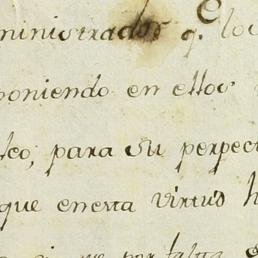 ministrador q.e lo
poniendo en ellos
leo, para su perfect
que enesta virtud h
que por falta